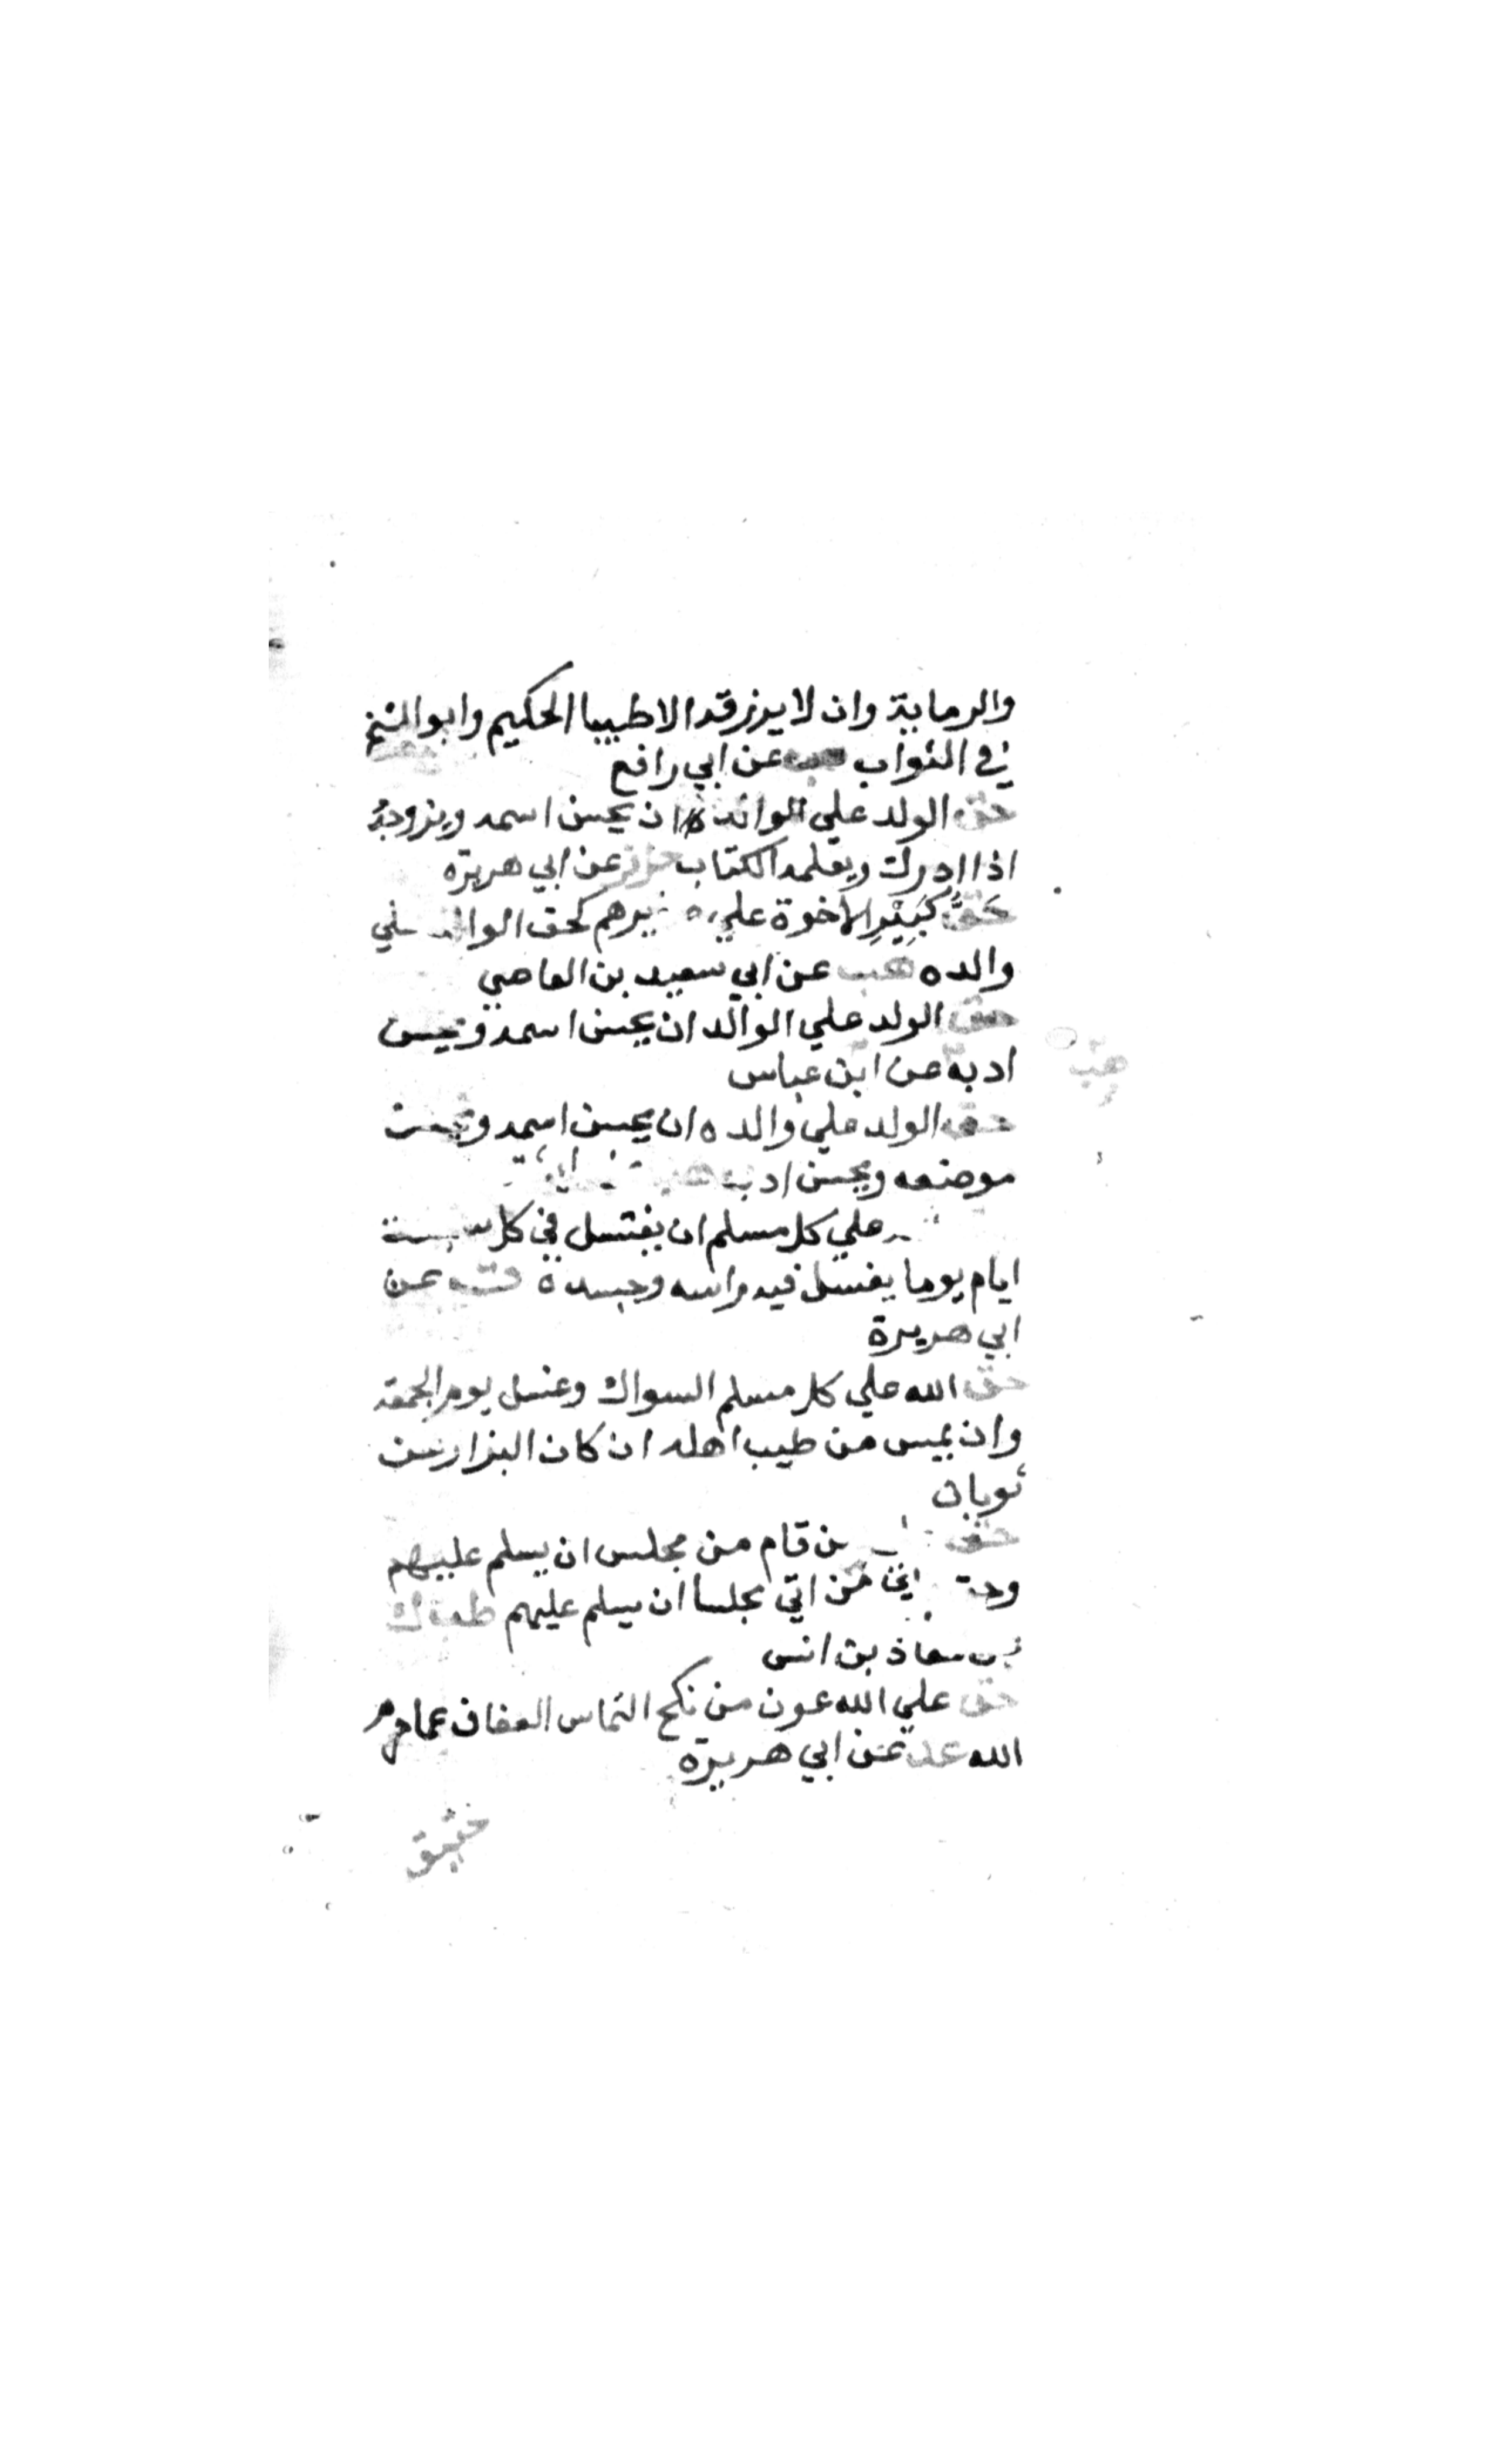 والرماية وان لا يرزقه الا طيبا الحكيم وابو الشيخ
في الثواب هب عن ابي رافع
حق الولد علي والده ان يحسن اسمه ويزوجه
اذا ادرك ويعلمه الكتاب عن ابي هريرة
حَقُّ كَبِيْرِ الاخوة علي كحق الوالد علي
والده هب عن ابي سعيد بن العاصي
حق الولد علي الوالد ان يحسن اسمه ويحسن
ادبه عن ابن عباس
هب
حق الولد علي والده ان يحسن اسمه ويحسن
موضعه ويحسن ادبه هب
علي كل مسلم ان يغتسل في كل سبعة
ايام يوما يغسل فيه راسه وجسده ق عن
ابي هريرة
حق الله علي كل مسلم السواك وغسل يوم الجمعة
وان يمس من طيب اهله ان كان البزار عن
ثوبان
حق من قام من مجلس ان يسلم عليهم
وحق من اتي مجلسا ان يسلم عليهم
عن معاذ بن انس
حق علي الله عون من نكح التماس العفاف عما حرم
الله عد عن ابي هريرة
حقيق